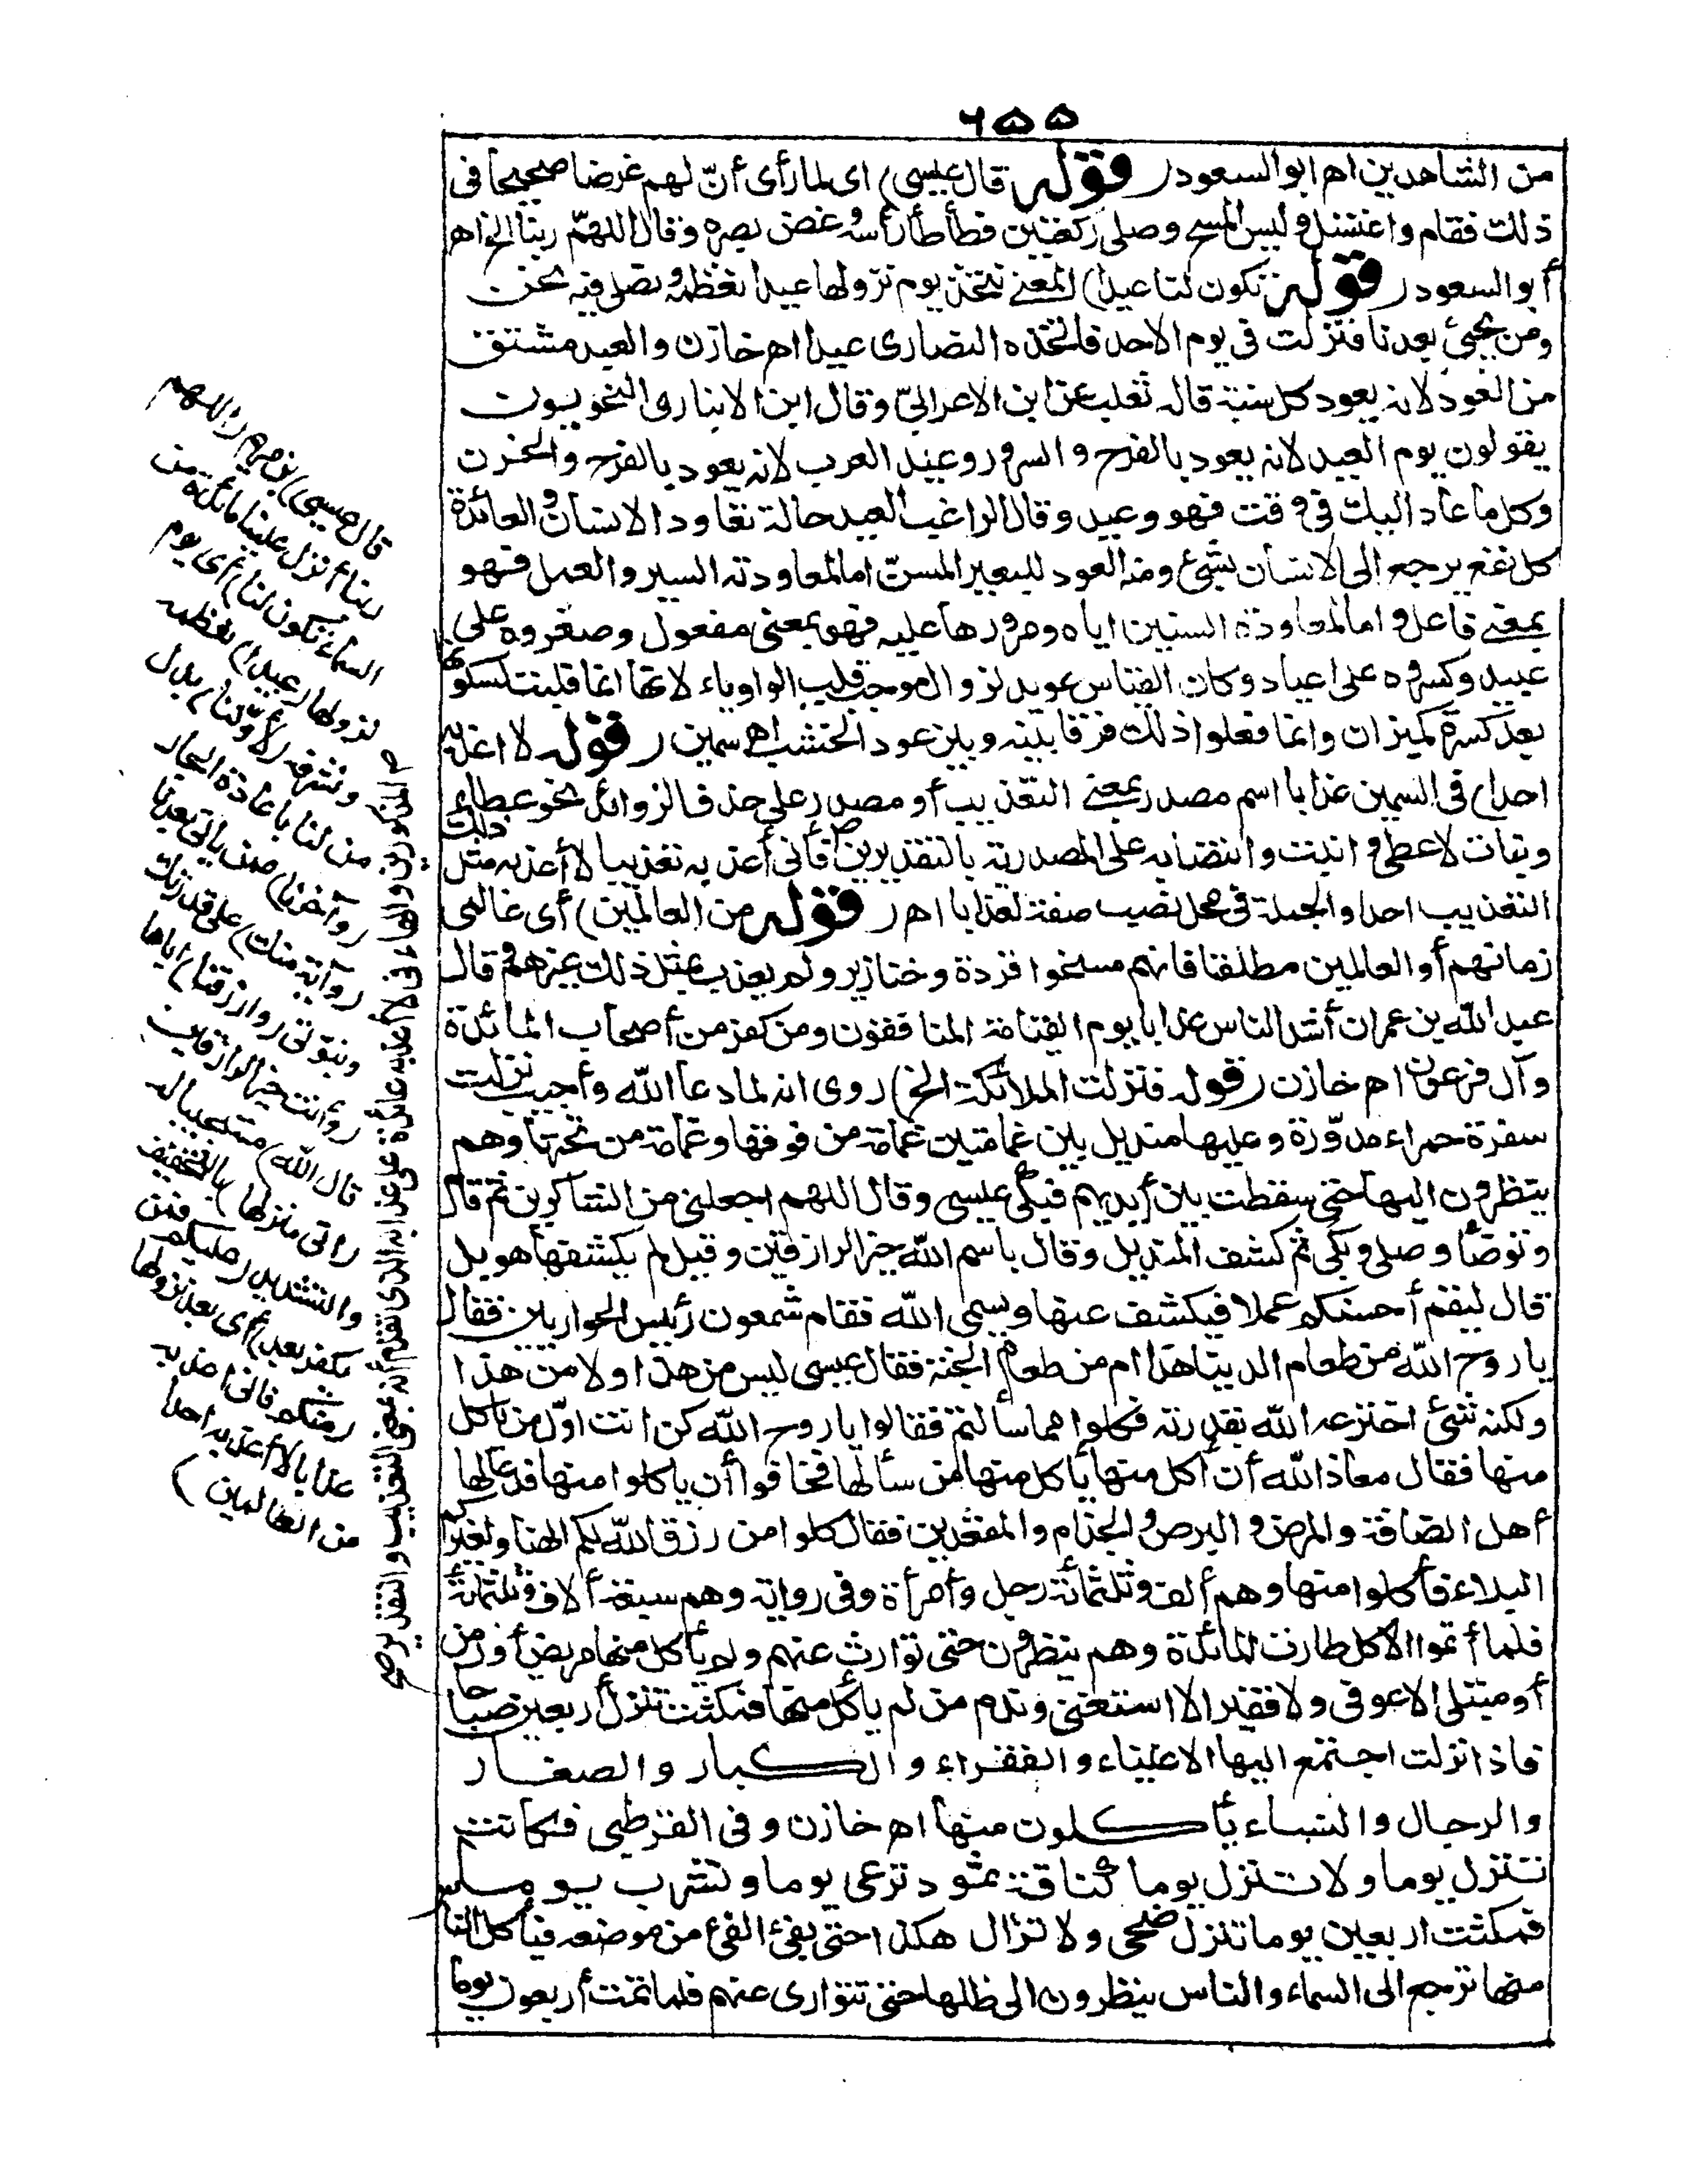 ٦٥٥
من الشاهدين اه ابو السعود ( قوله قال عيسى) اى لما رأى أنّ لهم غرضا صحيحا فى
ذلك فقام واغتسل ولبس المسح وصلى ركعتين فطأطأ رأسه وغض بصره وقال اللهمّ ربنا الخ اه
أبو السعود ( قوله تكون لنا عيدا) المعنى نتخذ يوم نزولها عيدا نعظمه ونصلى فيه نحن
ومن يجئ بعدنا فنزلت فى يوم الاحد فاتخذه النصارى عيدا اه خازن والعيد مشتق
من العود لانه يعود كل سنة قاله ثعلب عن ابن الاعرابىّ وقال ابن الانبارى النحويون
يقولون يوم العيد لانه يعود بالفرح والسرور وعيد العرب لانه يعود بالفرح والحزن
وكل ما عاد اليك فى وقت فهو وعيد وقال الراغب العيد حالة تعاود الانسان والعائدة
كل نفع يرجع الى الانسان بشئ ومنه العود للبعير المسنّ اما لمعاودته السير والعمل فهو
بمعنى فاعل واما لمعاودة السنين اياه ومرورها عليه فهو بمعنى مفعول وصغروه على
عييد وكسروه على اعياد وكان القياس عويد لزوال موجب قلب الواو ياء لانها انما قلبت لسكونها
بعد كسرة كميزان وانما فعلوا ذلك فرقا بينه وبين عود الخشب اه سمين ( قوله لا اعذبه
احدا) فى السمين عذابا اسم مصدر بمعنى التعذيب أو مصدر على حذف الزوائد نحو عطاء
ونبات لاعطى وانبت وانتصابه على المصدرية بالتقديرين فأنى أعذبه تعذيبا لا أعذب مثل ذلك
التعذيب احدا والجملة فى محل نصب صفة لعذابا اه ( قوله من العالمين) أى عالمى
زمانهم أو العالمين مطلقا فانهم مسخوا قردة وخنازير ولم يعذب بمثل ذلك غيرهم قال
عبد الله بن عمران أشد الناس عذابا يوم القيامة المنافقون ومن كفر من أصحاب المائدة
وآل فرعون اه خازن ( قوله فنزلت الملائكة الخ) روى انه لما دعا الله وأجيب نزلت
سفرة حمراء مدوّرة وعليها منديل بين غمامتين غمامة من فوقها وغمامة من تحتها وهم
ينظرون اليها حتى سقطت بين أيديهم فبكى عيسى وقال اللهم اجعلنى من الشاكرين ثم قام
وتوضأ وصلى وبكى ثم كشف المنديل وقال باسم الله خير الرازقين وقيل لم يكشفها هو بل
قال ليقم أحسنكم عملا فيكشف عنها ويسمى الله فقام شمعون رئيس الحواريين فقال
يا روح الله من طعام الدنيا هذا ام من طعام الجنة فقال عيسى ليس من هذا ولا من هذا
ولكنه شئ اخترعه الله بقدرته فكلوا مما سألتم فقالوا يا روح الله كن انت اوّل من يأكل
منها فقال معاذ الله أن آكل منها يأكل منها من سألها فخافوا أن يأكلوا منها فدعا لها
أهل الفاقة والمرض والبرص والجذام والمقعدين فقال كلوا من رزق الله لكم الهنا ولغيركم
البلاء فأكلوا منها وهم ألف وثلثمائة رجل وأمرأة وفى رواية وهم سبعة ألاف وثلثمائة
فلما أتموا الاكل طارت المائدة وهم ينظرون حتى توارت عنهم ولم يأكل منها مريض أو زمن
أو مبتلى الا عوفى ولا فقير الا استغنى وندم من لم يأكل منها فمكثت تنزل أربعين صباحا
فاذا نزلت اجتمع اليها الاغنياء والفقراء والكبار والصغار
والرجال والنساء يأكلون منها اه خازن وفى القرطبى فكانت
تنزل يوما ولا تنزل يوما كناقة ثمود ترعى يوما وتشرب يوما
فمكثت اربعين يوما تنزل ضحى ولا تزال هكذا حتى يفئ الفئ من موضعه فيأكل الناس
منها ترجع الى السماء والناس ينظرون الى ظلها حتى تتوارى عنهم فلما تمت أربعون يوما
قال عيسى) بن مريم (اللهم
ربنا أنزل علينا مائدة من
السماء تكون لنا) أى يوم
نزولها (عيدا) نعظمه
ونشرفه (لأوّلنا) بدل
من لنا باعادة الجار
(وآخرنا) ممن يأتى بعدنا
(وآية منك) على قدرتك
ونبوّتى (وارزقنا) اياها
(وأنت خير الرازقين
قال الله) مستجيبا له
(انى منزلها) بالتخفيف
والتشديد (عليكم فمن
يكفر بعد) أى بعد نزولها
(منكم فانى اعذبه
عذابا لا أعذبه احدا
من العالمين)
المذكورين والهاء فى لا أعذبه عائدة على عذابه الذى تقدم أنه بمعنى التعذيب والتقدير